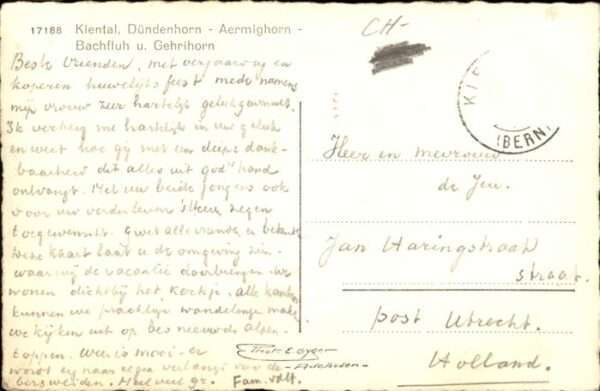 17188 Kiental, Dündenhorn - Aermighorn -
Bachfluh u. Gehrihorn
CH-
Beste Vrienden, met verjaardag en
koperen huwelijksfeest mede namens
mijn vrouw zeer hartelijk gelukgewenst.
Ik verheug me hartelijk in uw geluk
en weet hoe gij met een diepe dank-
baarheid dit alles uit god's hand
ontvangt. Met uw beide jongens ook
voor uw verder leven 's Heeren zegen
toegewenscht. Groet alle vrienden en bekenden
Deze kaart laat u de omgeving zien
waar wij de vacantie doorbrengen. We
wonen dichtbij het kerkje. Alle kanten
kunnen we prachtige wandelingen maken
we kijken uit op besneeuwde alpen-
toppen. Weer is mooi - er
wordt erg naar regen verlangd van de
bergweiden. Heel veel gr. Fam. vdH.
KI
(BERN)
Heer en mevrouw
de Jeu.
Jan Haringstraat
straat.
post Utrecht.
Holland.
Phot. E. Gyger
Adelboden